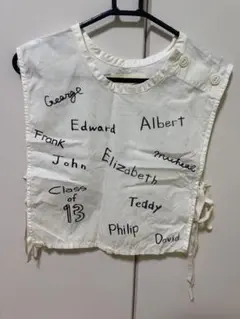 George
Edward
Albert
Frank
John
Elizabeth
Micheal
Class
of
13
Teddy
Philip
David